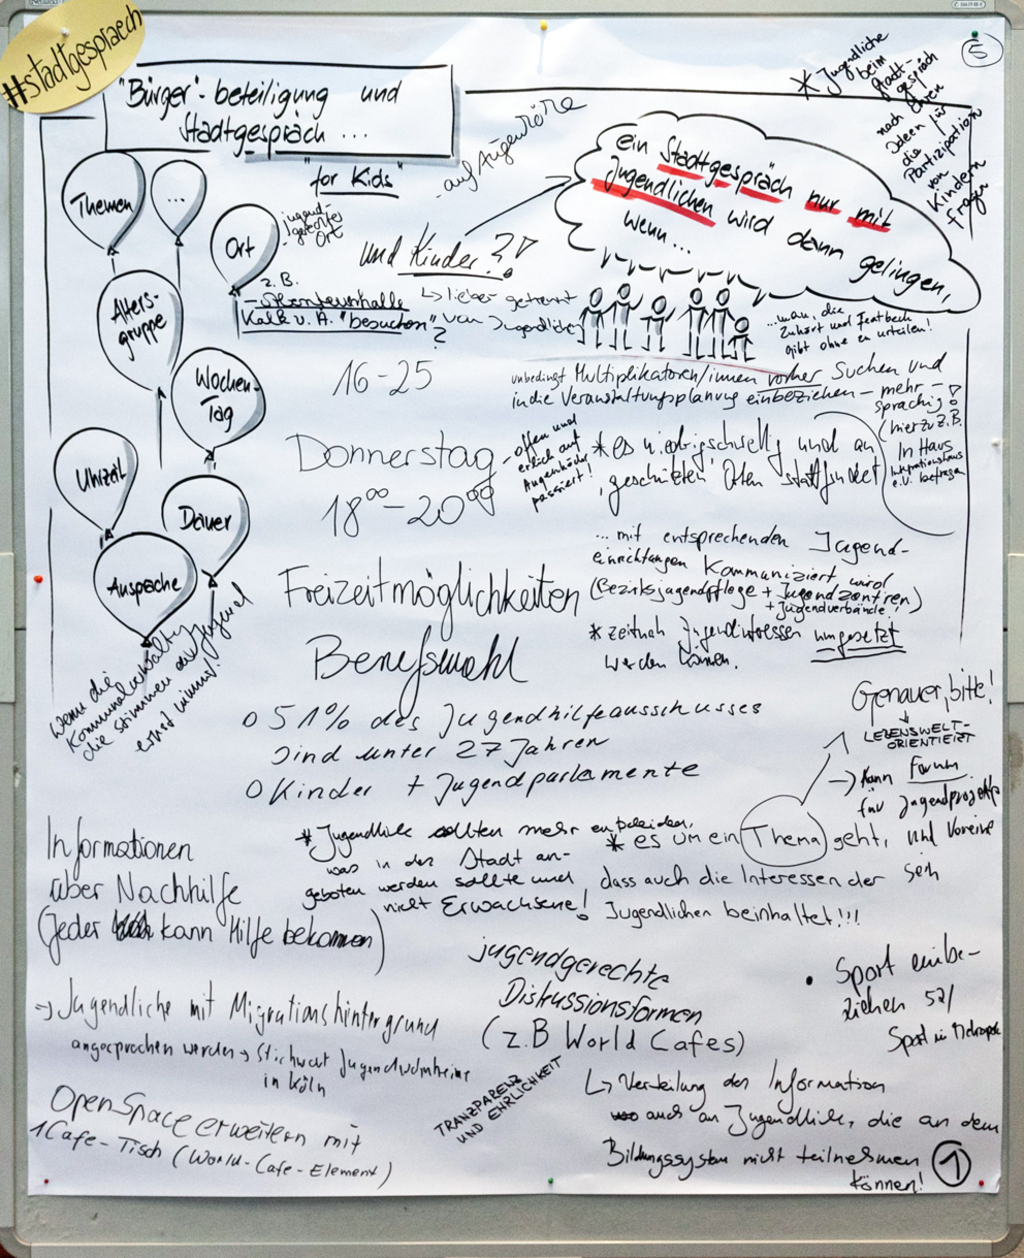 #stadtgespraech
"Bürger"-beteiligung und
Stadtgespräch ...
"for Kids"
5
* Jugendliche
beim
Stadt-
gespräch
nach ihren
Ideen für
die
Partizipation
von
Kindern
fragen
- auf Augenhöhe
ein Stadtgespräch nur mit
Jugendlichen wird dann gelingen,
wenn ...
Themen
...
Ort
jugend-
gerechter
Ort
z.B.
- Abenteuerhalle
Kalk v. A. "besuchen"
?
und Kinder?!
↳ lieber getrennt
von Jugendlichen
Alters-
gruppe
Wochen-
Tag
Uhrzeit
Dauer
Ansprache
...man, die
Zuhört und Feedback
gibt ohne zu urteilen!
16-25
unbedingt Multiplikatoren/innen vorher suchen und
in die Veranstaltungsplanung einbeziehen - mehr-
sprachig!
(hierzu z.B.
In Haus
Integrationshaus
e.V. befragen
Donnerstag
18⁰⁰-20⁰⁰
- offen und
ehrlich auf
Augenhöhe
passiert!
* es niedrigschwellig und an
'geschützten' Orten stattfindet
... mit entsprechenden Jugend-
einrichtungen kommuniziert wird
(Bezirksjugendpflege + Jugendzentren)
+ Jugendverbände
* zeitnah Jugendinteressen umgesetzt
werden können.
Freizeitmöglichkeiten
Berufswahl
Wenn die
Kommunalverwaltung
die Stimmen der Jugend
ernst nimmt!
o 51% des Jugendhilfeausschusses
sind unter 27 Jahren
o Kinder + Jugendparlamente
Genauer, bitte!
LEBENSWELT-
ORIENTIERT
→ kann Forum
für Jugendprojekte
und Vereine
sein
Informationen
über Nachhilfe
(jeder kann Hilfe bekommen)
* Jugendliche sollten mehr entscheiden,
was in der Stadt an-
geboten werden sollte und
nicht Erwachsene!
* es um ein Thema geht,
dass auch die Interessen der
Jugendlichen beinhaltet!!!
jugendgerechte
Diskussionsformen
(z.B World Cafes)
• Sport einbe-
ziehen
Sport in Metropole
→ Jugendliche mit Migrationshintergrund
angesprochen werden → Stichwort Jugendwohnheime
in Köln
TRANZPARENZ
UND EHRLICHKEIT
↳ Verteilung der Information
auch an Jugendliche, die an dem
Bildungssystem nicht teilnehmen
können!
1
OpenSpace erweitern mit
1 Cafe-Tisch (World-Cafe-Element)